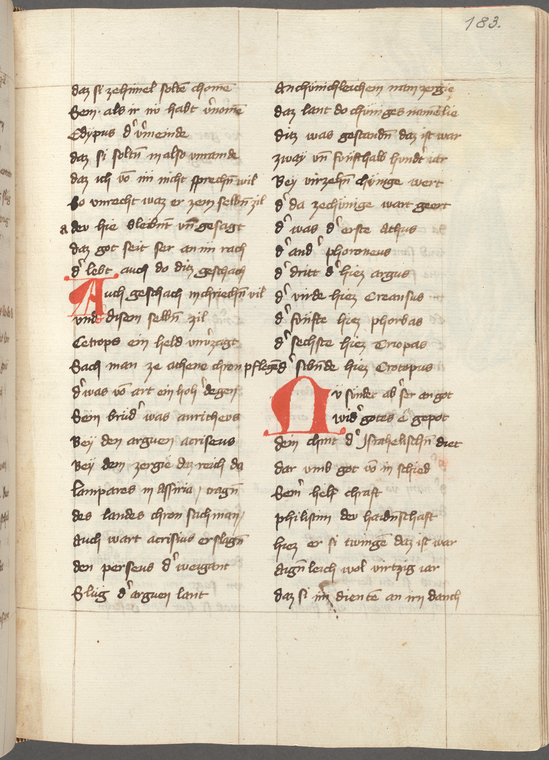 183.
daz si zehimel soltē chomē
Sem als ir nv habt v̉nomē
Edypus d̉ v̉meinde
daz si soltn in also vmande
daz ich vō im nicht sprechn wil
So vnrecht waz er zem selbn zil
der hie bleibn vn̄ gesagt
daz got seit ser an im rach
d̉ lebt auch do ditz geschach
Auch geschach in chriechn vil
vnd disem selbn zil
Cecrops ein held vnv̉zagt
Sach man ze athene chron pflegn
d̉ was vō art ein hoh̉ degen
Sein brud̉ was amitheos
Bey den arguen acriseus
Bey dem zergie daz reich da
lampares in assiria tragn
des landes chron sach man
Auch wart acrisius erslagn
den perseus d̉ weigant
Slug d̉ arguen lant
An chunichleichem nam zergie
daz lant do chuniges namē lie
ditz was gestandn daz ist war
zway vn̄ funfthalb hundt̉ iar
Bey virzehn chunige wert
d̉ da zechunige wart geert
d̉ was d̉ erste Athus
d̉ and̉ phoroneus
d̉ dritt d̉ hiez argus
d̉ virde hiez Creansus
d̉ funfte hiez phorbas
d̉ sechste hiez Triopas
d̉ sibnde hiez Crotopus
Nv sundet ab̉ ser an got
wid̉ gotes gepot
dem chint d̉ Israhelischn diet
dar vmb got vō in schied
Sein̉ helf chraft
philistim der haidnschaft
hiez er si twingē daz ist war
Aignleich wol virtzig iar
daz si in dientē an irn danch